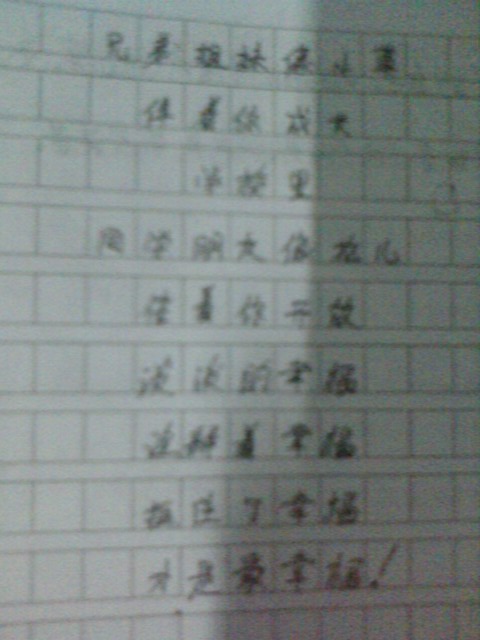 兄弟姐妹像小草
伴着你成长
学校里
同学朋友像花儿
伴着你开放
淡淡的幸福
诠释着幸福
抓住了幸福
才是最幸福！